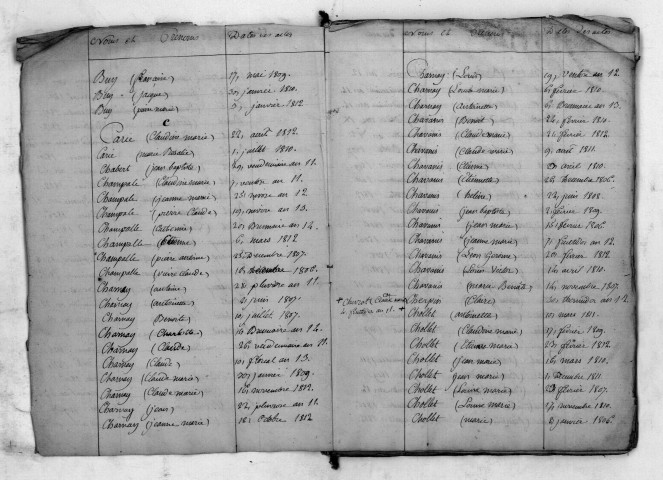 Noms et Prénoms Dates des actes
Buy (
) 17, mai 1809.
Buy (jaque) 30, janvier 1810.
Buy (jean marie) 3, janvier 1812
C
Carie (Claudine marie) 22, avril 1812.
Carie (marie ) 1, juillet 1810.
Chabert (jean baptiste) 29, vendemiaire an 11.
Champale (Claudine marie) 7, ventose an 11.
Champale (jeanne marie) 25, nivose an 12
Champale (pierre Claude) 19, nivose an 13.
Champalle (antoine) 20, Brumaire an 14.
Champalle (Etienne) 6, mars 1812
Champalle (pierre antoine) 28, Decembre 1807.
Champalle (pierre claude) 16, 1806.
Charnay (antoine) 28, pluviose an 11.
Charnay (antoinette) 2, juin 1807.
Charnay (Benoite) 10, juillet 1807.
Charnay (Charlotte) 16, Brumaire an 14.
Charnay (Claude) 26, vendemiaire an 11.
Charnay (Claude) 10, floreal an 13.
Charnay (Claude marie) 30, janvier 1809.
Charnay (Claude marie) 16, novembre 1812.
Charnay (jean) 22, pluviose an 11.
Charnay (jeanne marie) 18, Octobre 1812
Noms et Prénoms Dates des actes
Charnay (Louis) 19, Ventose an 12.
Charnay (Louis marie) 6, fevrier 1810.
Charnay (antoinette) 6, Brumaire an 13.
Chavanis (Benoit) 24, fevrier 1810.
Chavanis (Claude marie) 21, fevrier 1812.
Chavanis (Claude marie) 9, avril 1811.
Chavanis (Etienne) avril 1810.
Chavanis (Etiennette) 28, Decembre 1806.
Chavanis (helene) 22, juin 1808.
Chavanis (jean baptiste) 2, fevrier 1809.
Chavanis (jean marie) 15, fevrier 1806.
Chavanis (jeanne marie) 11, fructidor an 12.
Chavanis (Leon Gerome) 20, fevrier 1812.
Chavanis (Louis ) 16, avril 1810.
Chavanis (marie Benoite) 16, novembre 1807.
+ Chervolt Claude marie 2, an 11. +
(Claire) 30, an 12
Chollet (antoinette) 10, mars 1811.
Chollet (Claudine marie) 17, fevrier 1809.
Chollet (Etienne marie) 23, fevrier 1812.
Chollet (jean marie) 16, mars 1810.
Chollet (jean marie) Decembre 1811.
Chollet (Louise marie) fevrier 1807.
Chollet (Louise marie) 14, novembre 1810.
Chollet (marie) 8, janvier 1806.